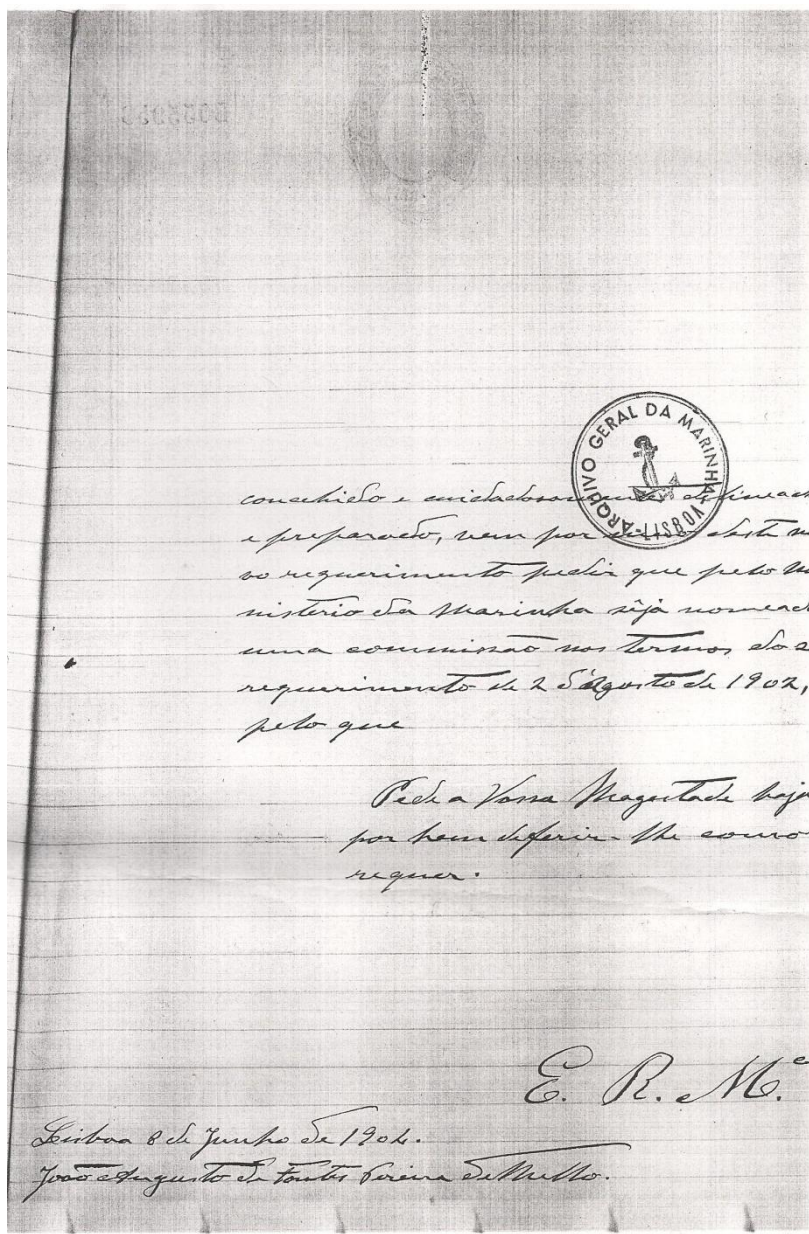 ARQUIVO GERAL DA MARINHA
-LISBOA-
concebido e cuidadosamente delinead
e preparado, vem por d'este n
vo requerimento pedir que pelo M
nisterio da Marinha seja nomead
uma commissão nos termos do s
requerimento de 2 d'Agosto de 1902,
pelo que
Pede a Vossa Magestade haja
por bem deferir-lhe como
requer.
E. R. M.ce
Lisboa 8 de Junho de 1904.
João Augusto de Fontes Pereira de Mello.